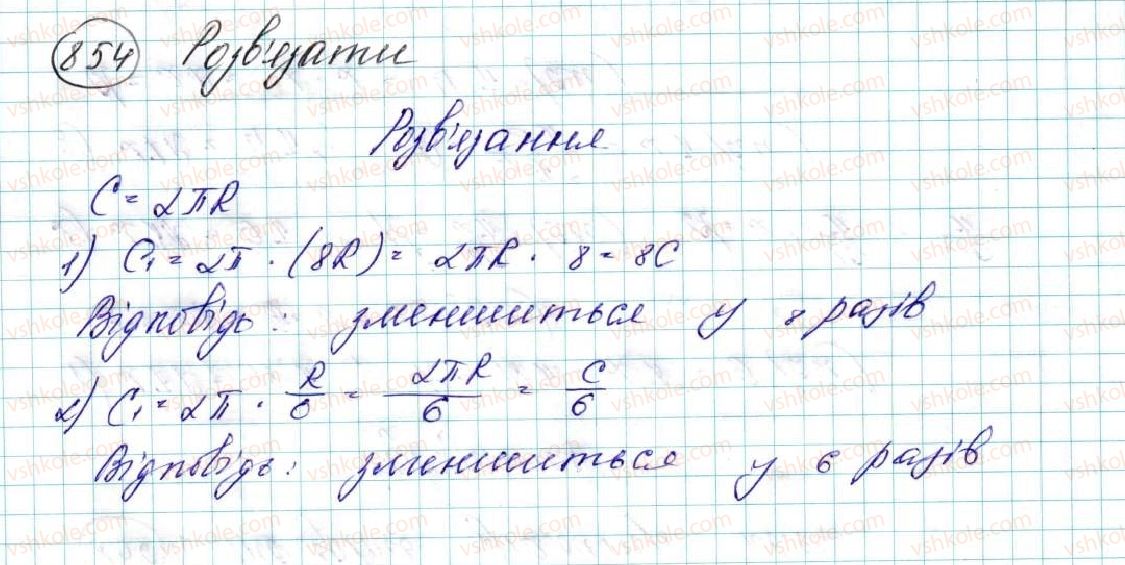 854 Розв'язати
Розв'язання
C = 2πR
1) C₁ = 2π · (8R) = 2πR · 8 = 8C
Відповідь: зменшиться у 8 разів
2) C₁ = 2π · R/6 = 2πR/6 = C/6
Відповідь: зменшиться у 6 разів